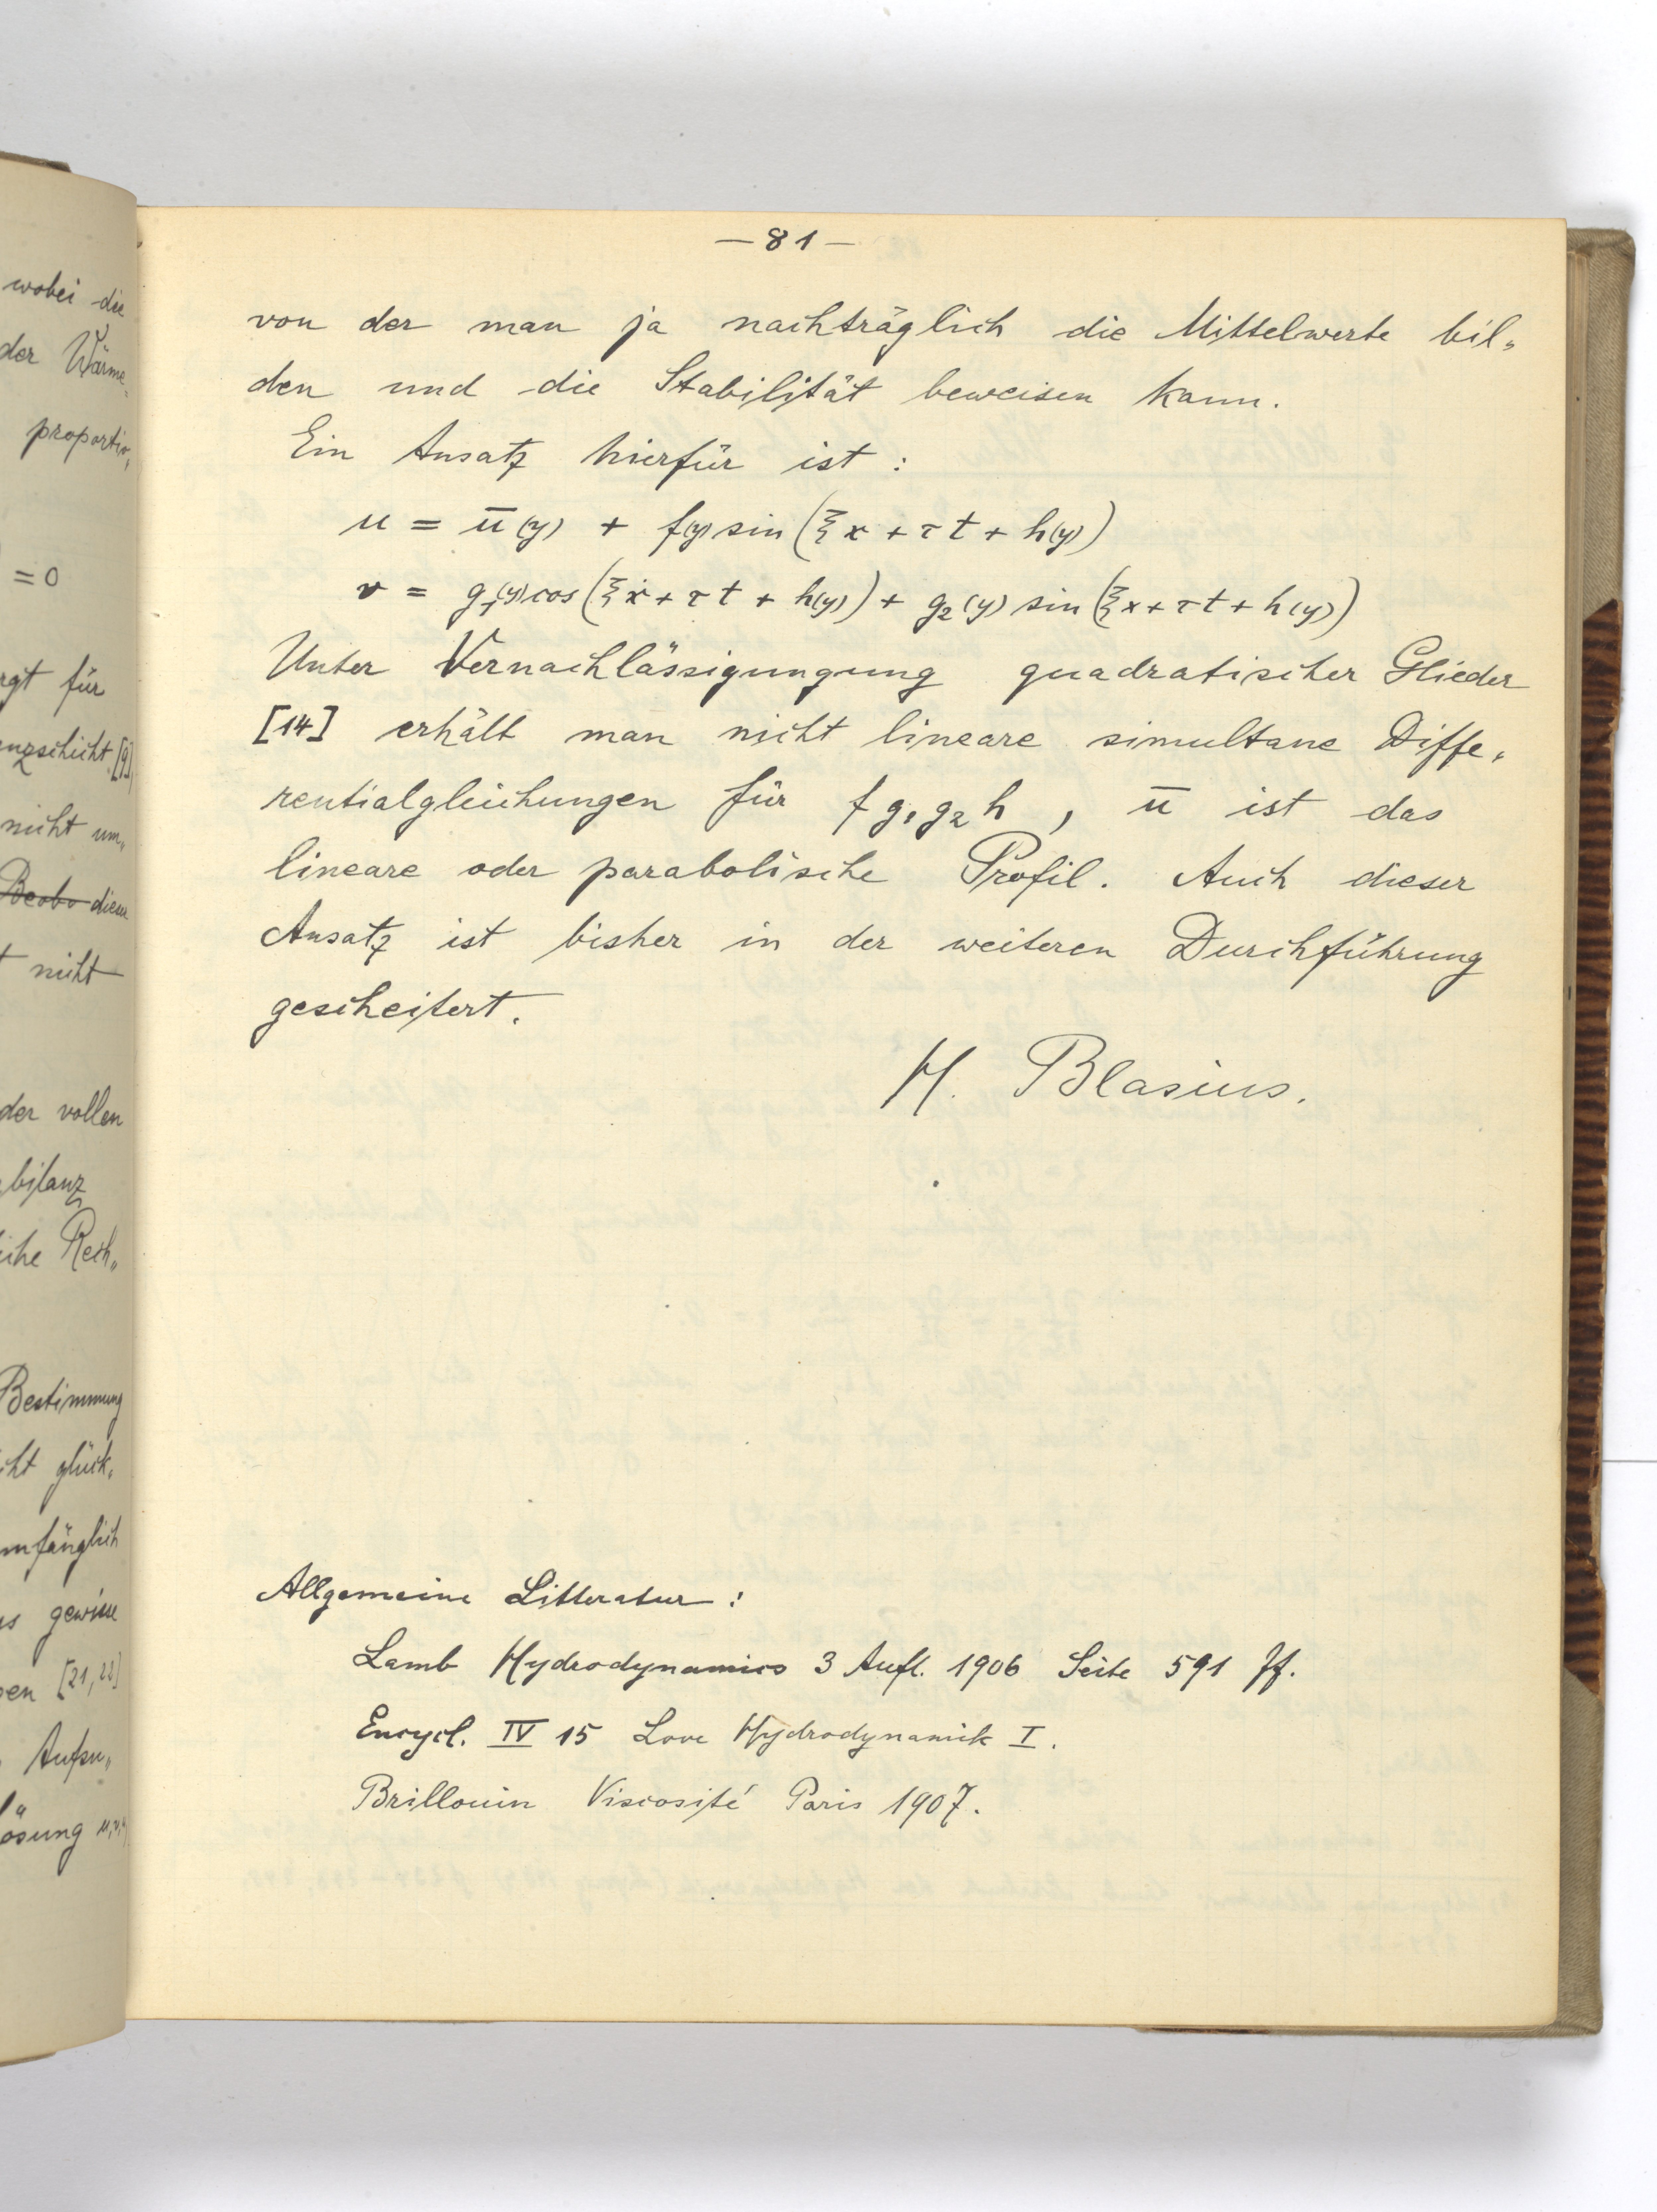 wobei die
der Wärme-
proportio„
= 0
für
[9]
nicht um„
Beobo diese
nicht
der vollen
bilanz
Rech„
Bestimmung
glück„
gewisse
[21, 22]
—81—
von der man ja nachträglich die Mittelwerte bil„
den und die Stabilität beweisen kann.
Ein Ansatz hierfür ist :
u = ū(y) + f(y) sin (ξx + τt + h(y))
v = g₁(y) cos (ξx + τt + h(y)) + g₂(y) sin (ξx + τt + h(y))
Unter Vernachlässigungung quadratischer Glieder
[14] erhält man nicht lineare simultane Diffe„
rentialgleichungen für f g₁ g₂ h , ū ist das
lineare oder parabolische Profil. Auch dieser
Ansatz ist bisher in der weiteren Durchführung
gescheitert.
H. Blasius.
Allgemeine Litteratur :
Lamb Hydrodynamics 3 Aufl. 1906 Seite 591 ff.
Encycl. IV 15 Love Hydrodynamik I.
Brillouin Viscosité Paris 1907.